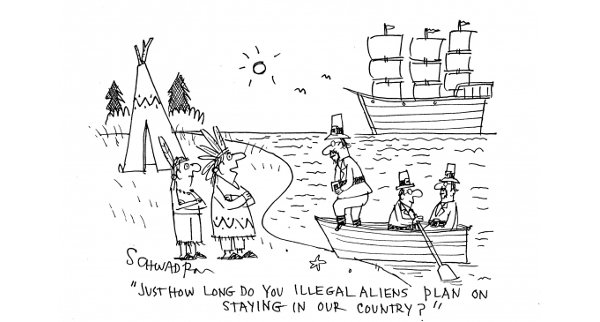 SCHWADRON
"JUST HOW LONG DO YOU ILLEGAL ALIENS PLAN ON
STAYING IN OUR COUNTRY?"